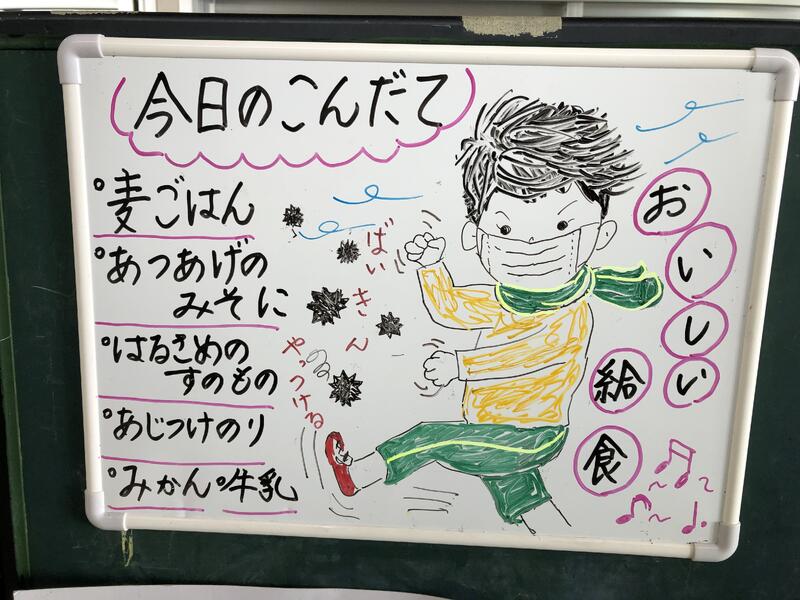 今日のこんだて
麦ごはん
あつあげの
みそに
はるさめの
すのもの
あじつけのり
みかん 牛乳
ばいきん
やっつける
おいしい
給食